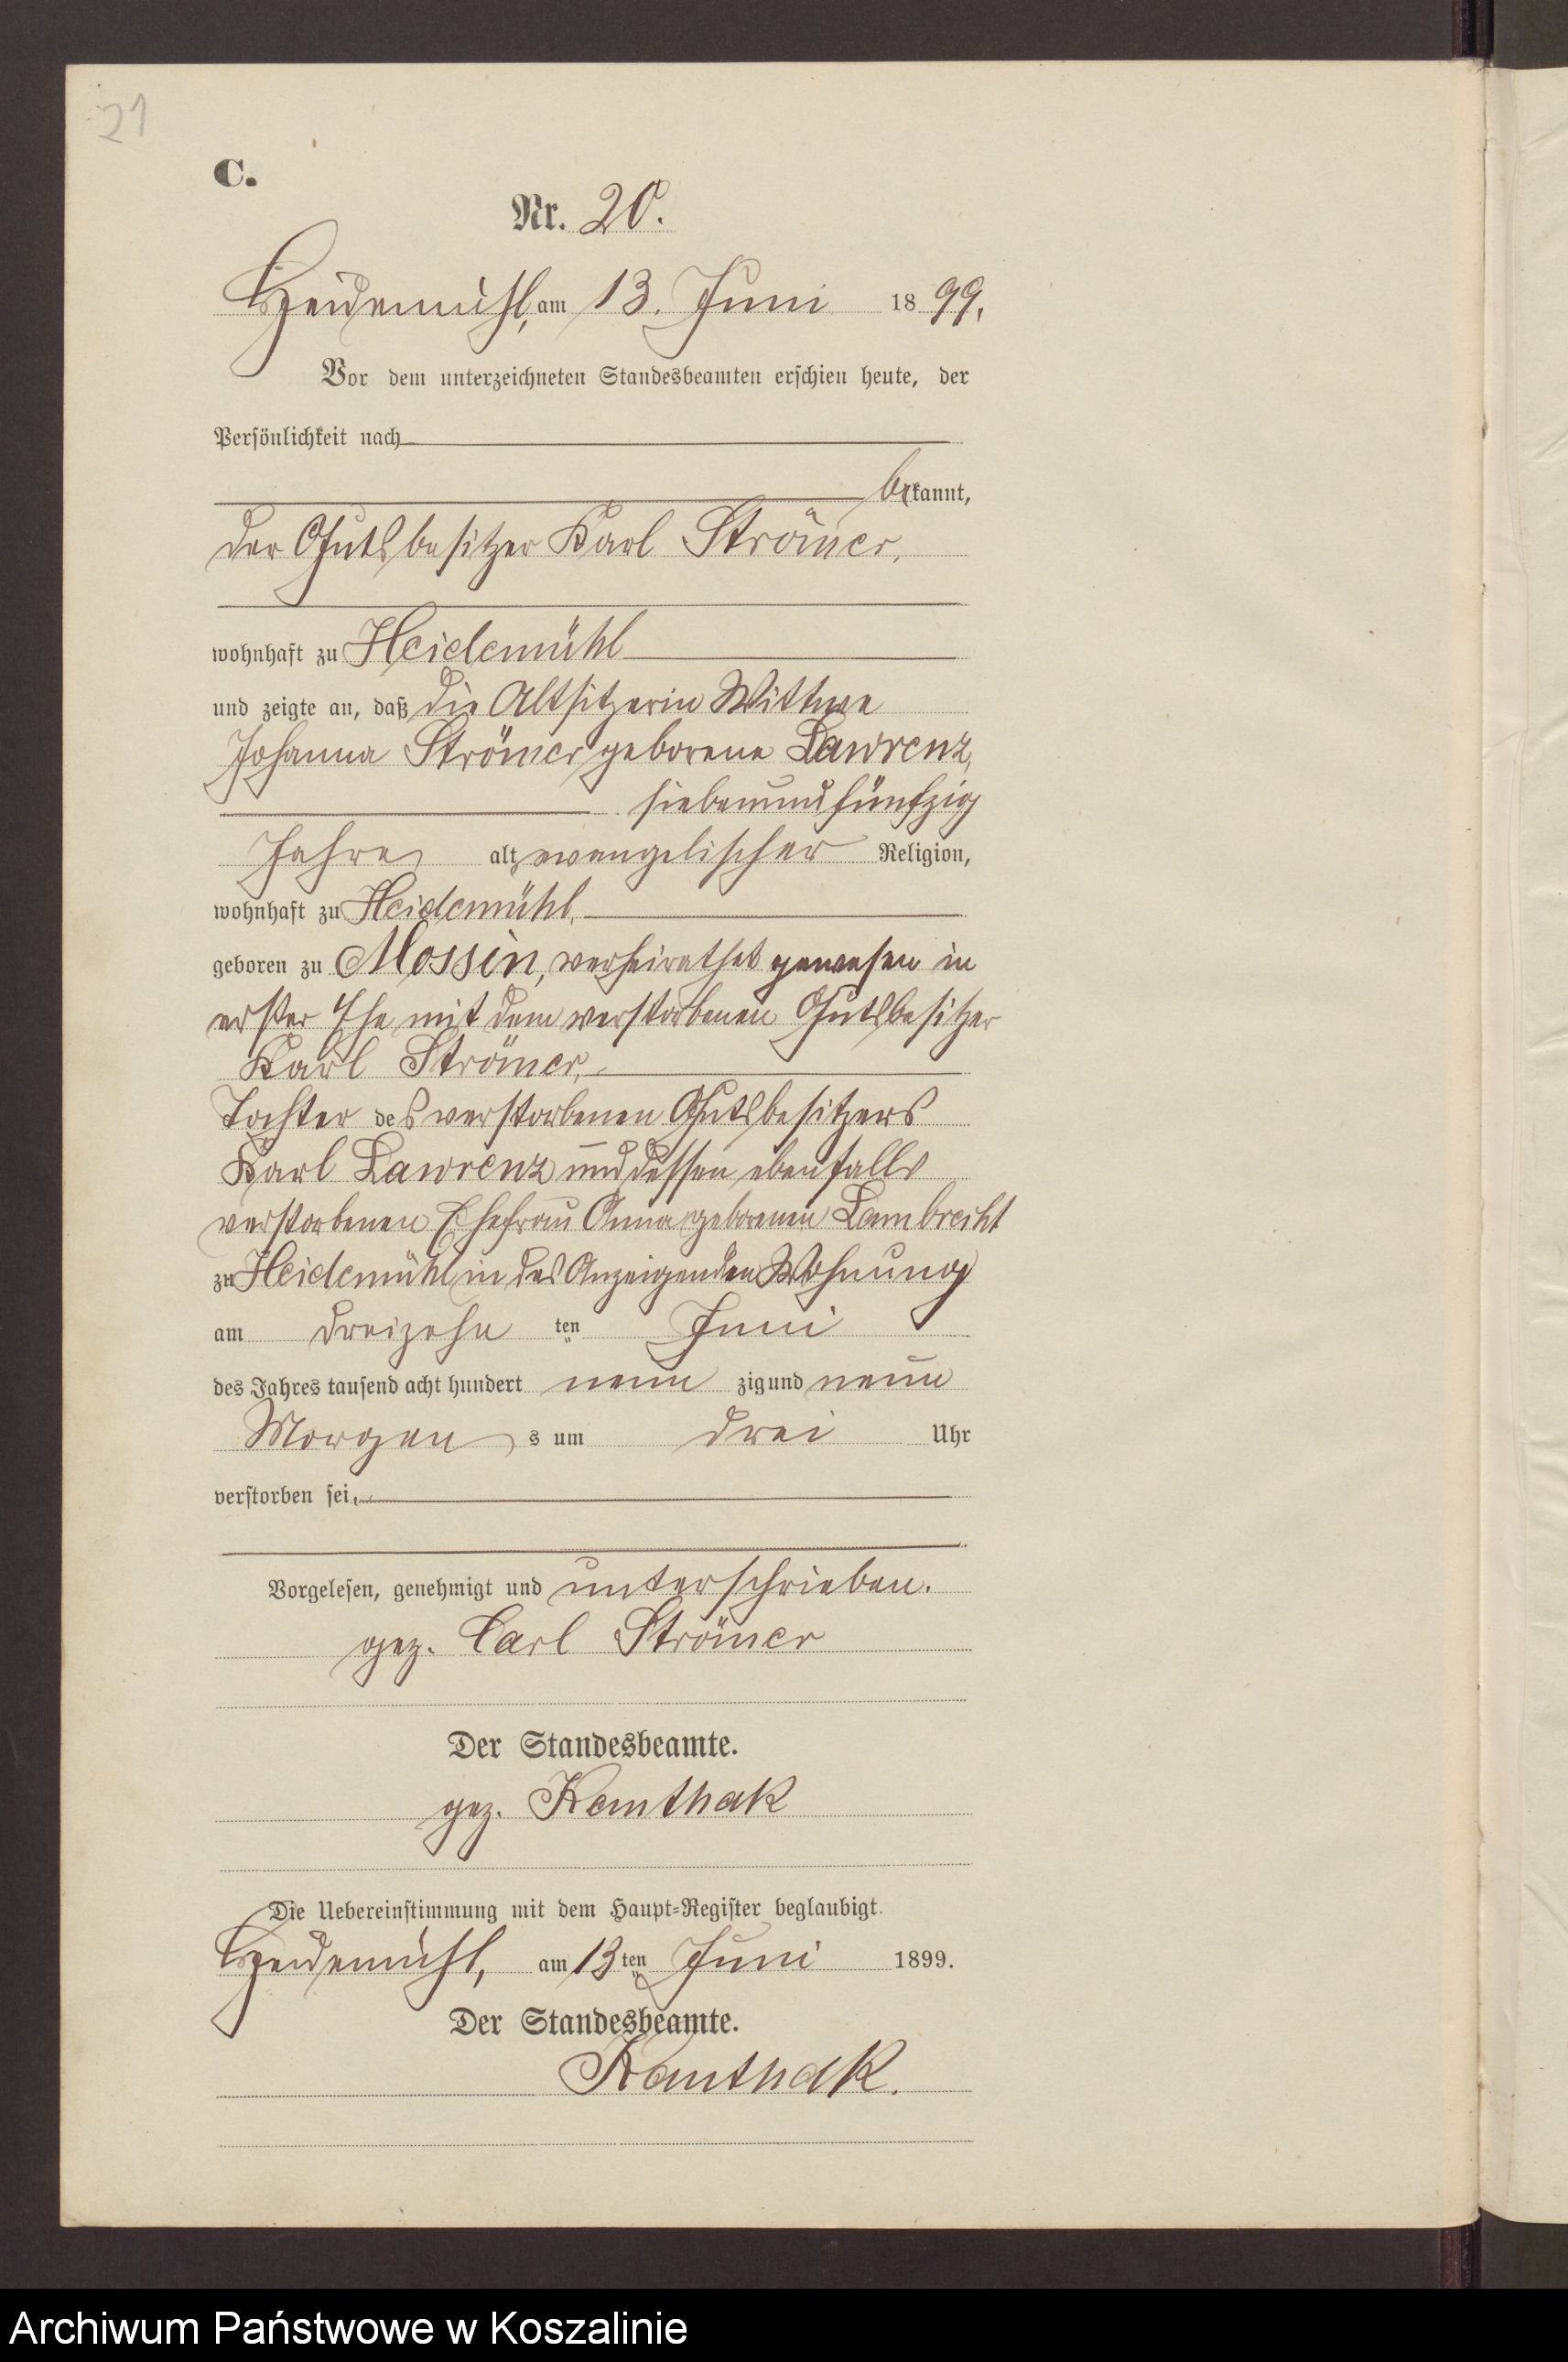 21
C.
Nr. 20.
Heidemühl, am 13. Juni 1899.
Vor dem unterzeichneten Standesbeamten erschien heute, der
Persönlichkeit nach
bekannt,
der Gutsbesitzer Karl Strömer,
wohnhaft zu Heidemühl
und zeigte an, daß die Altsitzerin Wittwe
Johanna Strömer geborene Lawrenz,
siebenundfünfzig
Jahre alt, evangelischer Religion,
wohnhaft zu Heidemühl,
geboren zu Mossin, verheirathet gewesen in
erster Ehe mit dem verstorbenen Gutsbesitzer
Karl Strömer,
Tochter des verstorbenen Gutsbesitzers
Karl Lawrenz und dessen ebenfalls
verstorbenen Ehefrau Anna geborenen Lambrecht
zu Heidemühl in des Anzeigenden Wohnung
am dreizehn ten Juni
des Jahres tausend acht hundert neun zig und neun
Morgen s um drei Uhr
verstorben sei.
Vorgelesen, genehmigt und unterschrieben.
gez. Carl Strömer
Der Standesbeamte.
gez. Kamthak
Die Uebereinstimmung mit dem Haupt-Register beglaubigt.
Heidemühl, am 13ten Juni 1899.
Der Standesbeamte.
Archiwum Państwowe w Koszalinie